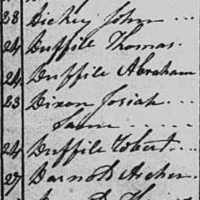 28 Dickey John ...
24 Duffile Thomas.
24 Duffile Abraham
23 Dixon Josiah ...
Same ...
24 Duffile Robert ...
27 Barnott Archer